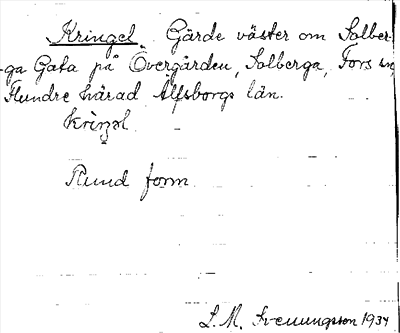 Kringel. Gärde väster om Solber-
ga Gata på Övergården, Solberga, Fors sn
Flundre härad Älfsborgs län.
Rund form
L. M. Svenungsson 1934